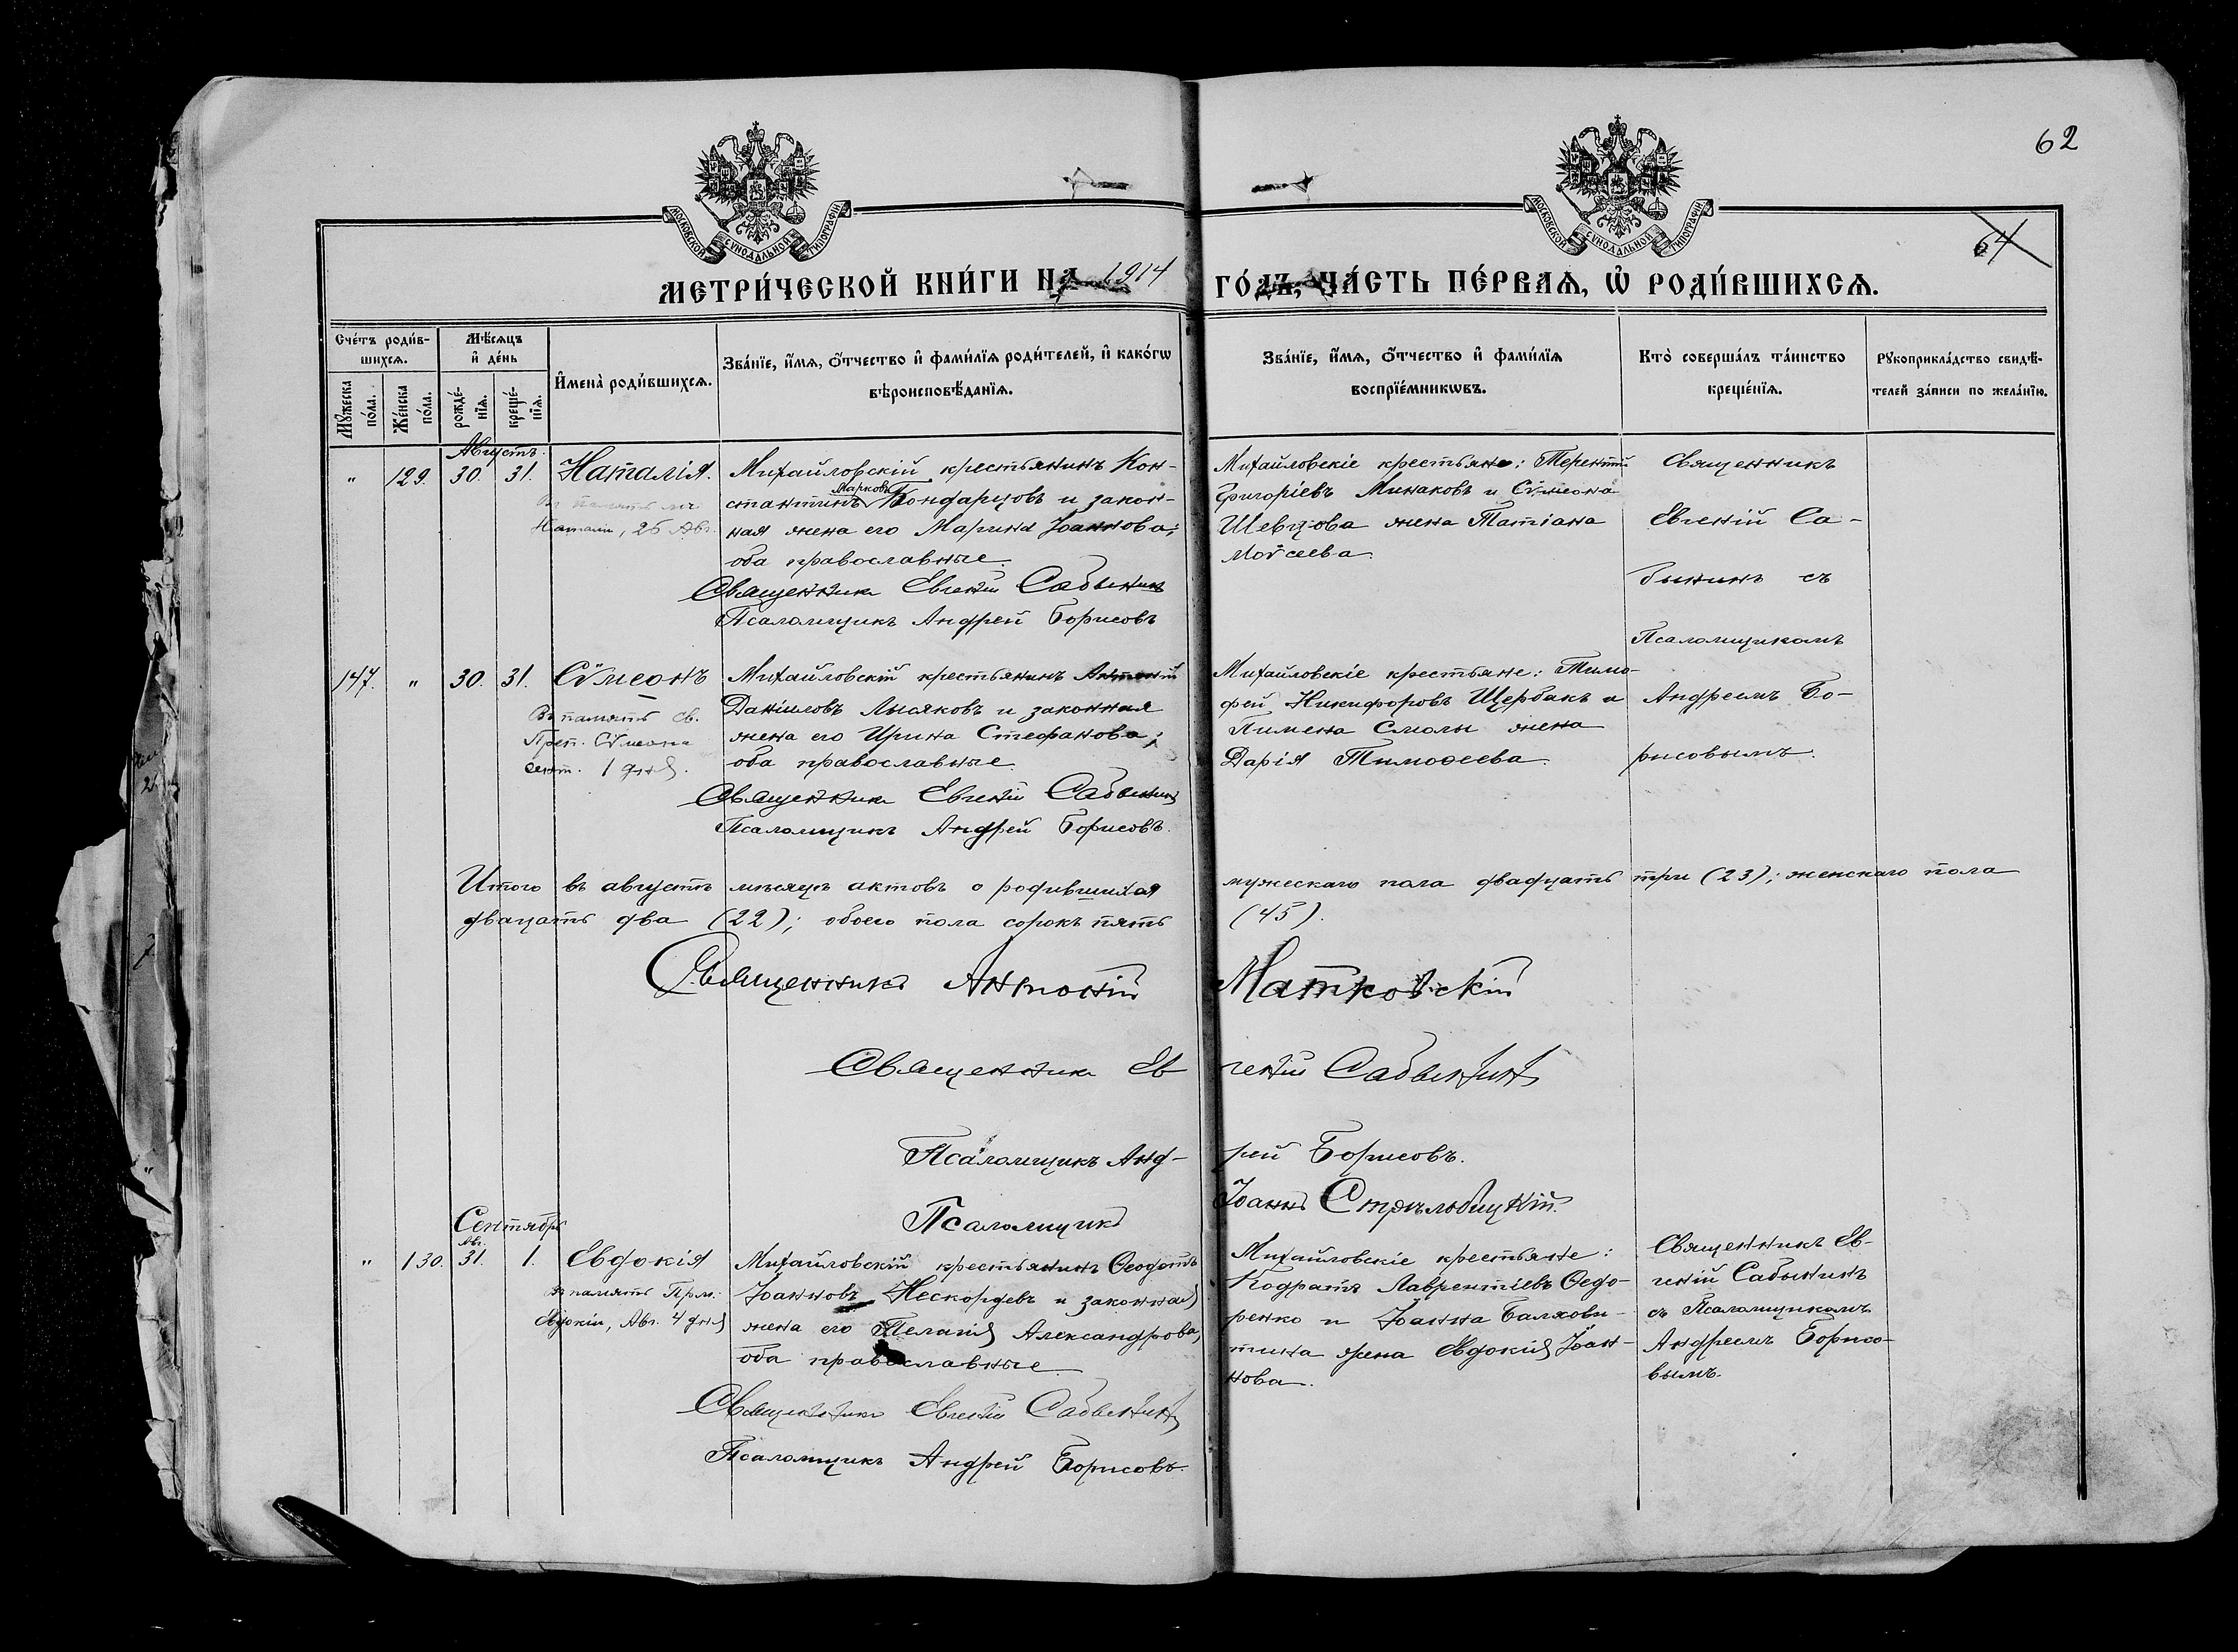 62
64
МОСКОВСКОЙ СѴНОДАЛЬНОЙ ТИПОГРАФІИ
МОСКОВСКОЙ СѴНОДАЛЬНОЙ ТИПОГРАФІИ
МЕТРИ́ЧЕСКОЙ КНИ́ГИ НА 1914 ГО́ДЪ, ЧА́СТЬ ПЕ́РВАѦ, Ѡ҆ РОДИ́ВШИХСѦ.
Сче́тъ роди́в-
шихсѧ.
Мꙋ́жеска
по́ла.
Же́нска
по́ла.
Мѣ́сѧцъ
и҆ де́нь
рожде́-
нїѧ.
креще́-
нїѧ.
И҆мена̀ роди́вшихсѧ.
Зва́нїе, и҆́мѧ, ѻ҆́тчество и҆ фами́лїѧ роди́телей, и҆ како́гѡ
вѣроисповѣ́данїѧ.
Зва́нїе, и҆́мѧ, ѻ҆́тчество и҆ фами́лїѧ
воспрїе́мникѡвъ.
Кто̀ соверша́лъ та́инство
креще́нїѧ.
Рꙋкоприкла́дство свидѣ́-
телей за́писи по жела́нїю.
Августъ.
" 129. 30. 31. Наталія.
Въ память мц.
Наталіи, 26 Авг.
Михайловскій крестьянинъ Кон-
стантинъ Марковъ Бондарцовъ и закон-
ная жена его Марина Іоаннова;
оба православные.
Священникъ Евгеній Сабынинъ
Псаломщикъ Андрей Борисовъ
Михайловскіе крестьяне: Терентій
Григоріевъ Минаковъ и Сѵмеона
Шевцова жена Татіана
Моѵсеева.
Священникъ
Евгеній Са-
бынинъ съ
Псаломщикомъ
Андреемъ Бо-
рисовымъ.
147. " 30. 31. Сѵмеонъ
Въ память св.
Преп. Сѵмеона
сент. 1 дня.
Михайловскій крестьянинъ Антоній
Даніиловъ Лысяковъ и законная
жена его Ирина Стефанова;
оба православные.
Священникъ Евгеній Сабынинъ
Псаломщикъ Андрей Борисовъ.
Михайловскіе крестьяне: Тимо-
фей Никифоровъ Щербакъ и
Пимена Смолы жена
Дарія Тимоѳеева.
Итого въ августѣ мѣсяцѣ актовъ о родившихся мужескаго пола двадцать три (23); женскаго пола
двацать два (22); обоего пола сорокъ пять (45).
Священникъ Антоній Матковскій
Священникъ Евгеній Сабынинъ
Псаломщикъ Анд-рей Борисовъ.
Псаломщикъ Іоаннъ Стрѣльбицкій.
Сентябрь
Авг.
" 130. 31. 1. Евдокія
Въ память Прм.
Евдокіи, Авг. 4 дня
Михайловскій крестьянинъ Ѳеодотъ
Іоанновъ Нескордевъ и законная
жена его Пелагія Александрова,
оба православные.
Священникъ Евгеній Сабынинъ
Псаломщикъ Андрей Борисовъ.
Михайловскіе крестьяне:
Кодратъ Лаврентіевъ Ѳедо-
ренко и Іоанна Балкови-
тина жена Евдокія Іоан-
нова.
Священникъ Ев-
геній Сабынинъ
съ Псаломщикомъ
Андреемъ Борисо-
вымъ.